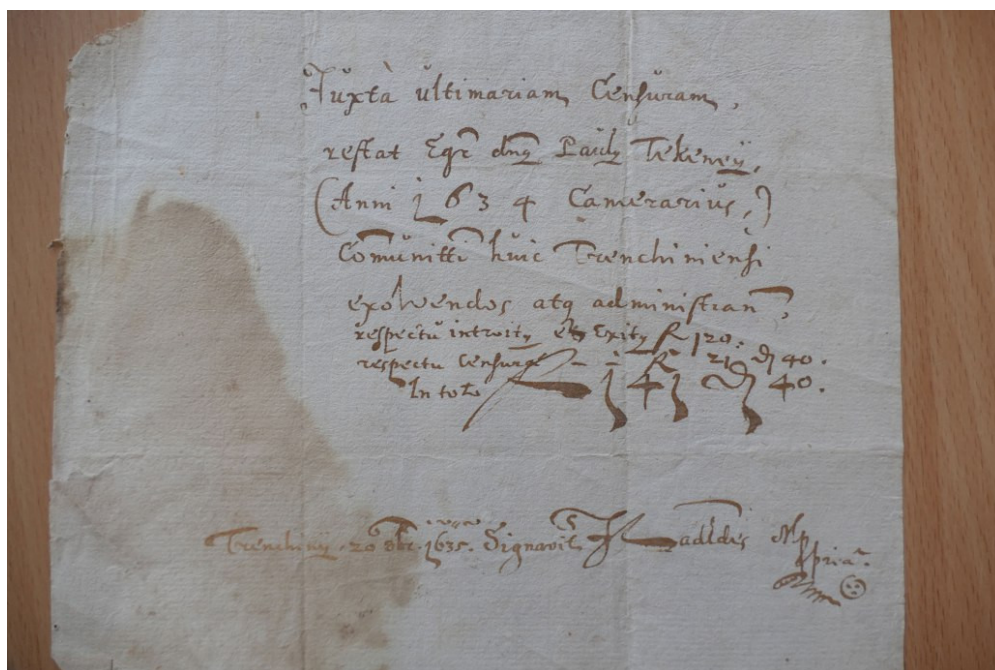 Juxtà ultimariam Censuram,
restat Egr dnq Paulq Tekeneÿ,
(Anni 1634 Camerarius,)
Comunitti huic Trenchiniensi
exolvendos atq administran,
respectu introitq et Exitq f 120:
respectu Censuræ f 21 d 40.
In toto f 141 d 40.
Trenchinÿ 20 1635. Signavit